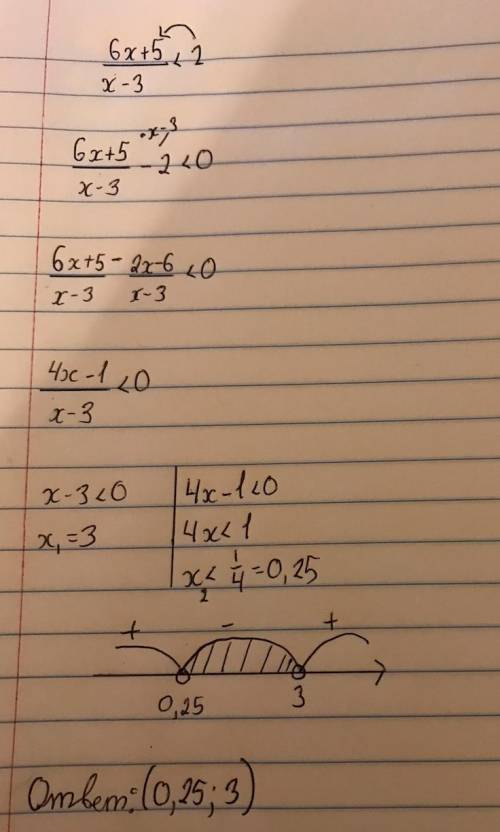 (6x+5)/(x-3) < 2
(6x+5)/(x-3) - 2 < 0 ·x-3
(6x+5)/(x-3) - (2x-6)/(x-3) < 0
(4x-1)/(x-3) < 0
x-3<0 | 4x-1<0
x₁=3 | 4x<1
x₂< 1/4 =0,25
+ - +
0,25 3
Ответ: (0,25; 3)